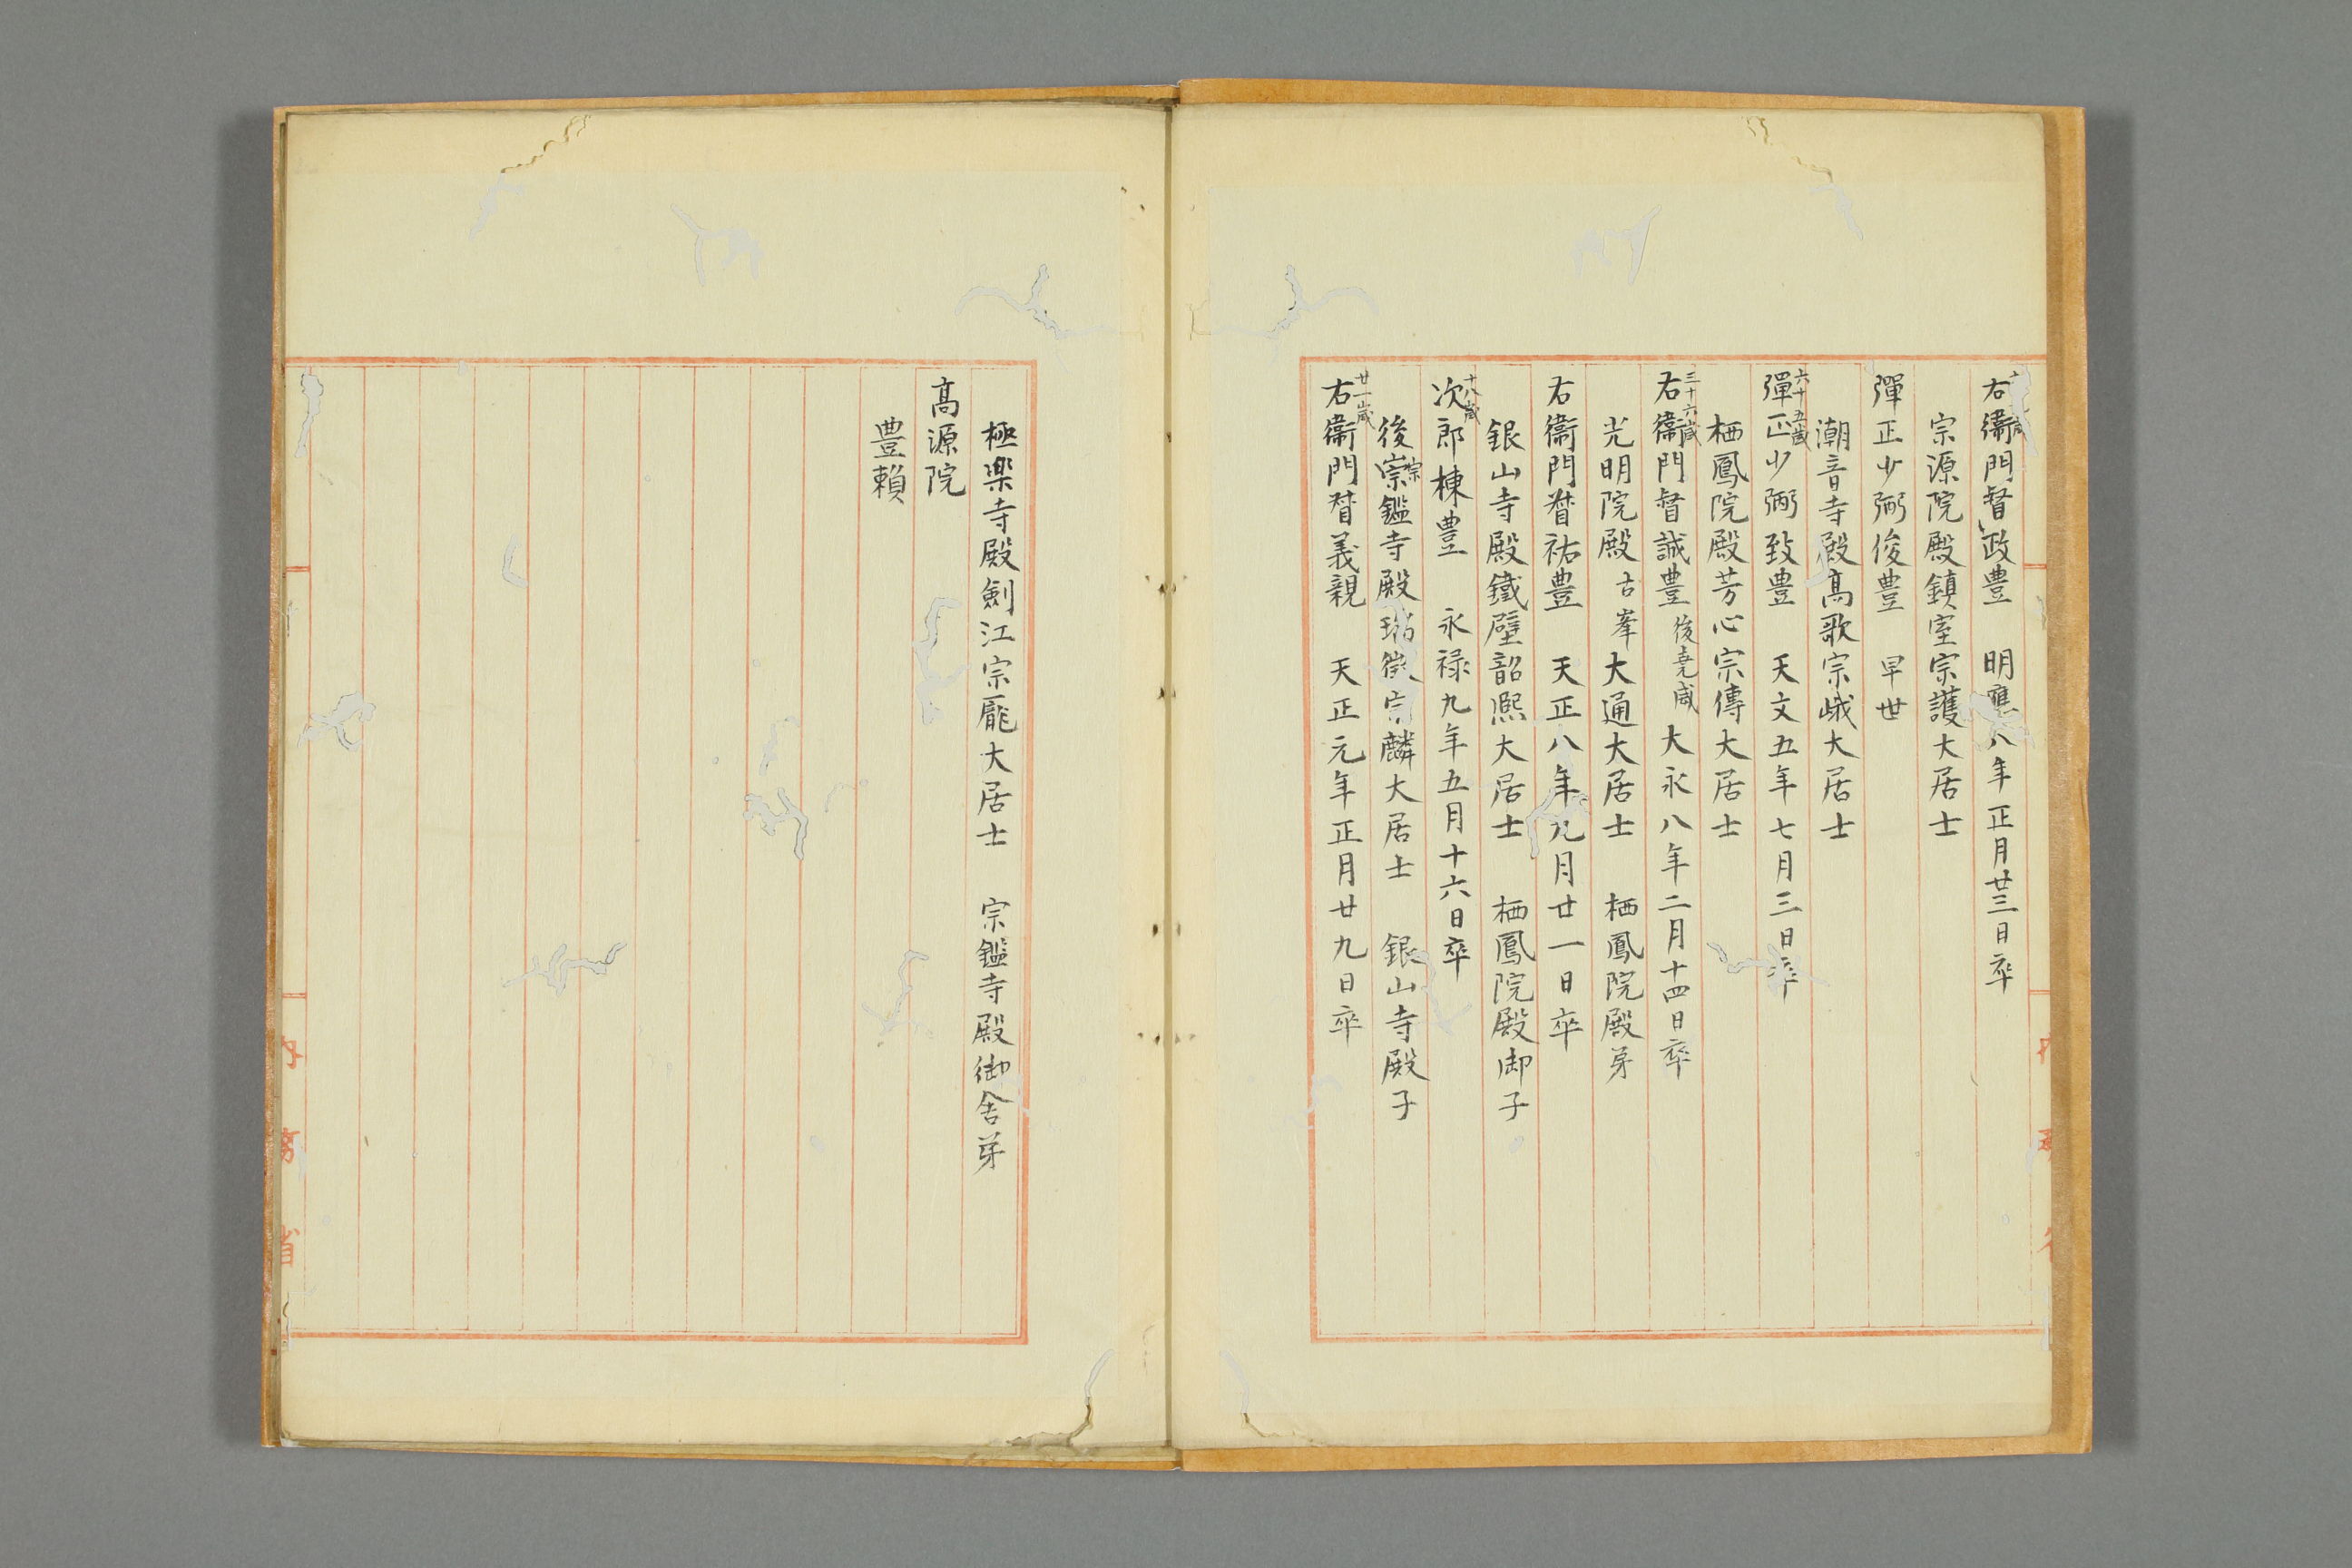 右衞門督政豊　明應八年正月廿三日卒
宗源院殿鎮室宗護大居士
彈正少弼俊豊　早世
潮音寺殿髙歌宗峨大居士
六十五歳
彈正少弼致豊　天文五年七月三日卒
栖鳳院殿芳心宗傳大居士
三十六歳
右衞門督誠豊 後尭咸 大永八年二月十四日卒
光明院殿 古峯 大通大居士　栖鳳院殿弟
右衞門督祐豊　天正八年九月廿一日卒
銀山寺殿鐵壁韶凞大居士　栖鳳院殿御子
十八歳
次郎棟豊　永禄九年五月十六日卒
宗
後崇鑑寺殿徴宗麟大居士　銀山寺殿子
廿一歳
右衞門督義親　天正元年正月廿九日卒
極楽寺殿劍江宗龐大居士　宗鑑寺殿御舎弟
髙源院
豊賴
内務省